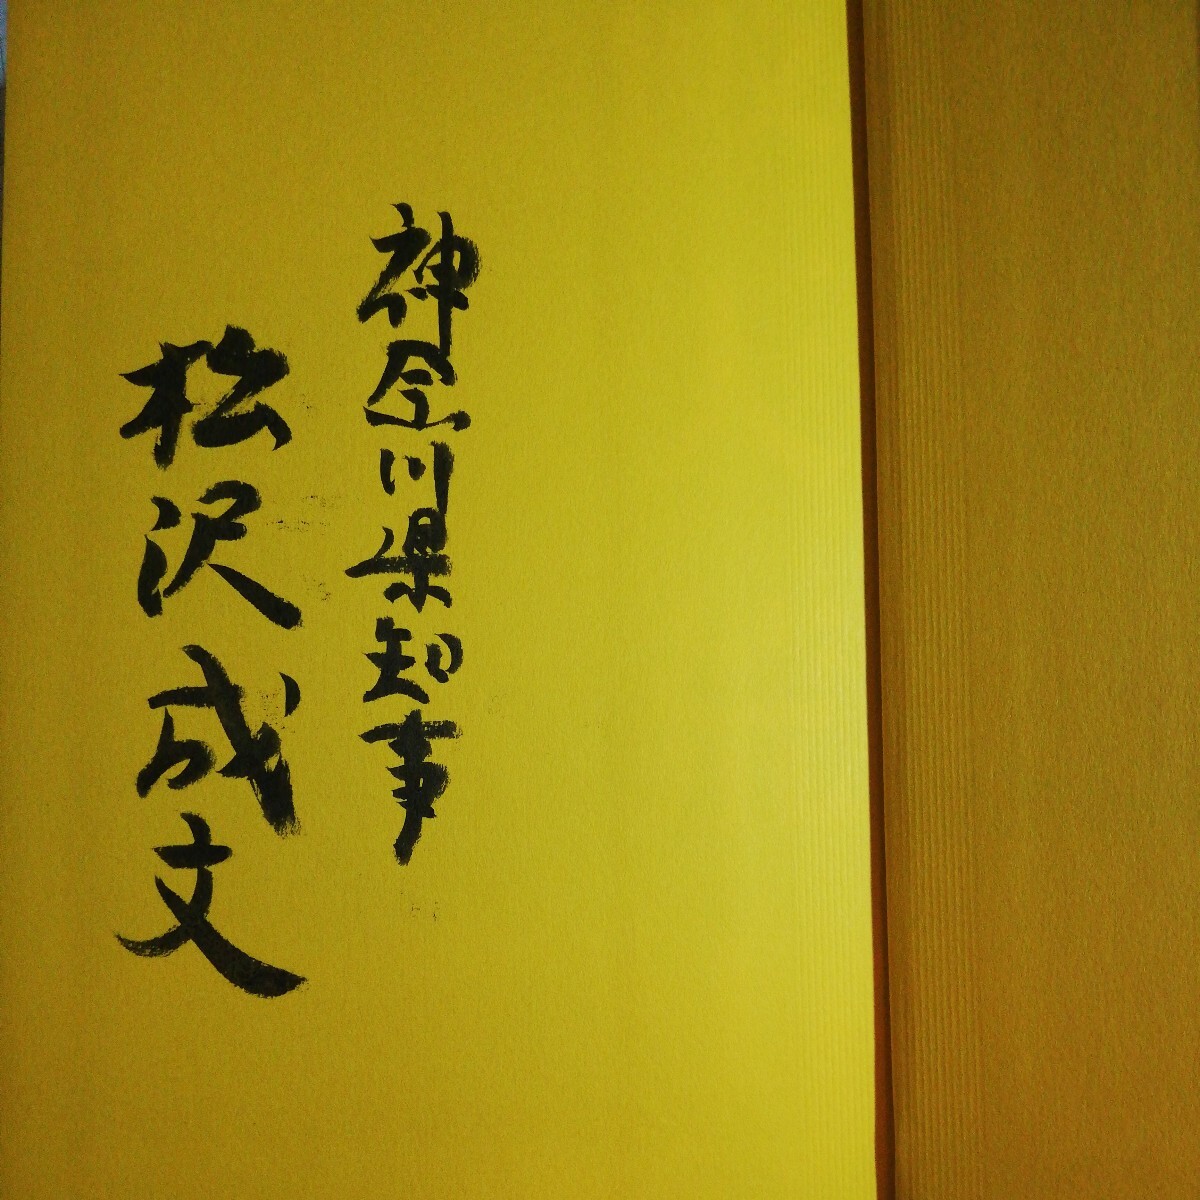 神奈川県知事
松沢成文